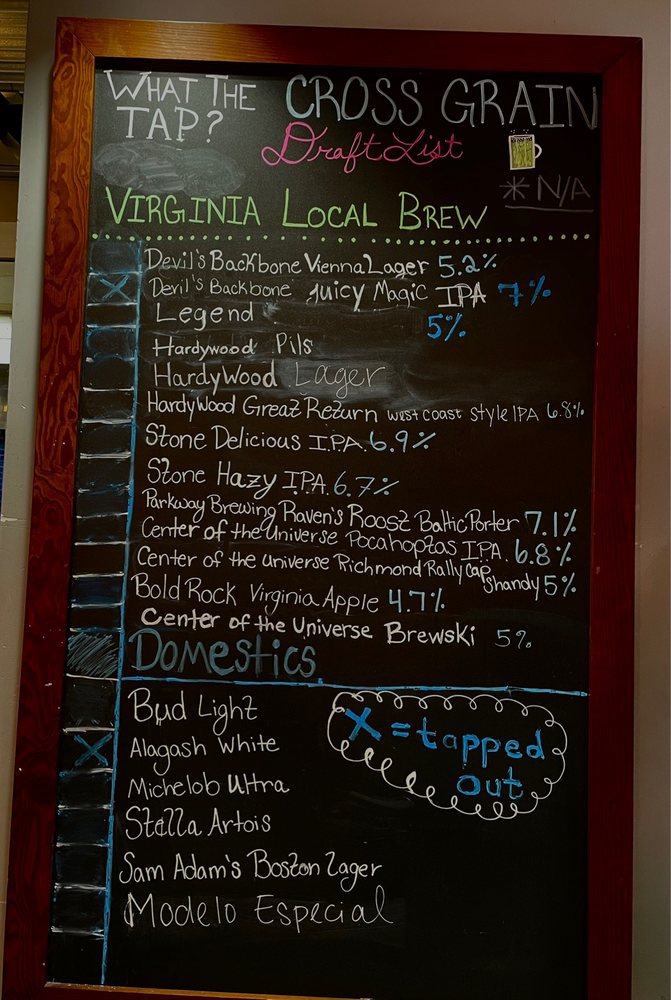 WHAT THE TAP?
CROSS GRAIN
Draft List
* N/A
VIRGINIA LOCAL BREW
Devil's Backbone Vienna Lager 5.2%
X Devil's Backbone Juicy Magic IPA 7%
Legend 5%
Hardywood Pils
HardyWood Lager
HardyWood Great Return west coast style IPA 6.8%
Stone Delicious I.P.A. 6.9%
Stone Hazy I.P.A. 6.7%
Parkway Brewing Raven's Roost Baltic Porter 7.1%
Center of the Universe Pocahoptas I.P.A. 6.8%
Center of the Universe Richmond Rally Cap Shandy 5%
Bold Rock Virginia Apple 4.7%
Center of the Universe Brewski 5%
DOMESTICS
Bud Light
X Alagash White
Michelob Ultra
Stella Artois
Sam Adam's Boston Lager
Modelo Especial
X = tapped
out